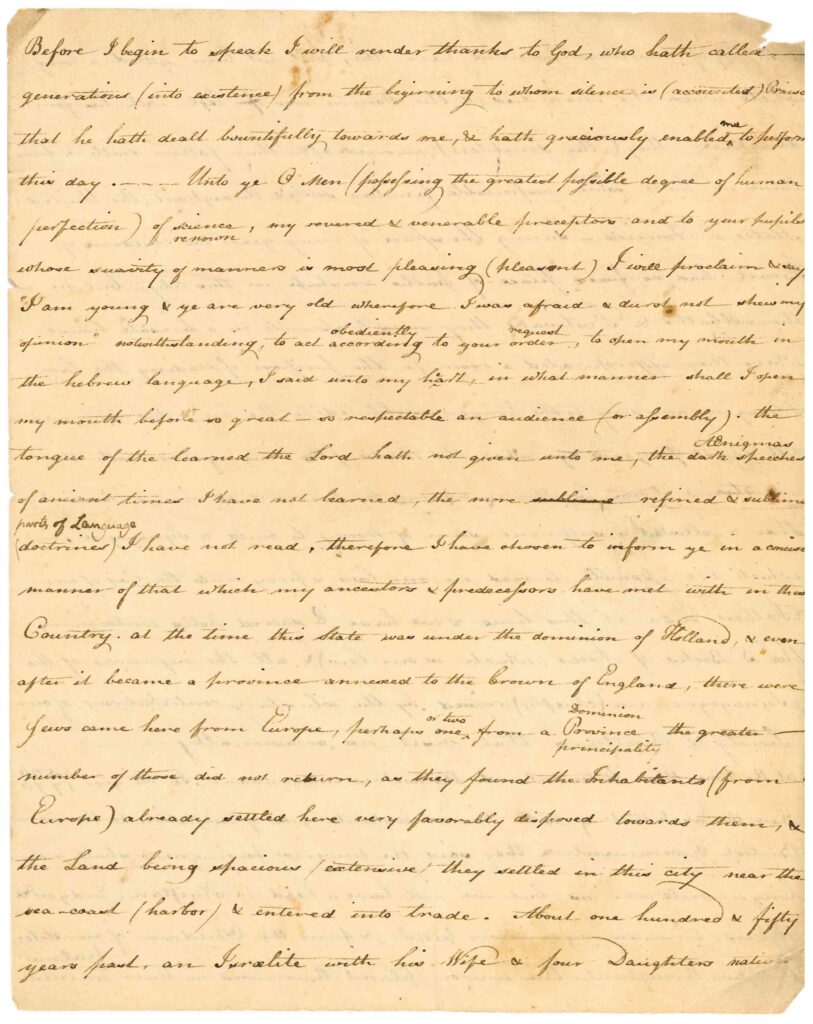 Before I begin to speak I will render thanks to God, who hath called
generations (into existence) from the beginning to whom silence is (accounted) Praise
that he hath dealt bountifully towards me, & hath graciously enabled me to perform
this day. - - - - Unto ye O Men (possessing the greatest possible degree of human
perfection) of science, my revered & venerable preceptors and to your pupils
renown
whose suavity of manners is most pleasing (pleasant) I will proclaim & say
I am young & ye are very old wherefore I was afraid & durst not shew my
obediently request
opinion" notwithstanding, to act according to your order, to open my mouth in
the hebrew language, I said unto my heart, in what manner shall I open
my mouth before so great - so respectable an audience (or assembly). the
Ænigmas
tongue of the learned the Lord hath not given unto me, the dark speeches
of ancient times I have not learned, the more sublime refined & sublime
parts of Language
(doctrines) I have not read, therefore I have chosen to inform ye in a concise
manner of that which my ancestors & predecessors have met with in this
Country. at the time this State was under the dominion of Holland, & even
after it became a province annexed to the Crown of England, there were
Dominion
Jews came here from Europe, perhaps one or two from a Province the greater -
principality
number of those did not return, as they found the Inhabitants (from
Europe) already settled here very favorably disposed towards them, &
the Land being spacious (extensive) they settled in this city near the
sea-coast (harbor) & entered into trade. About one hundred & fifty
years past, an Israelite with his Wife & four Daughters